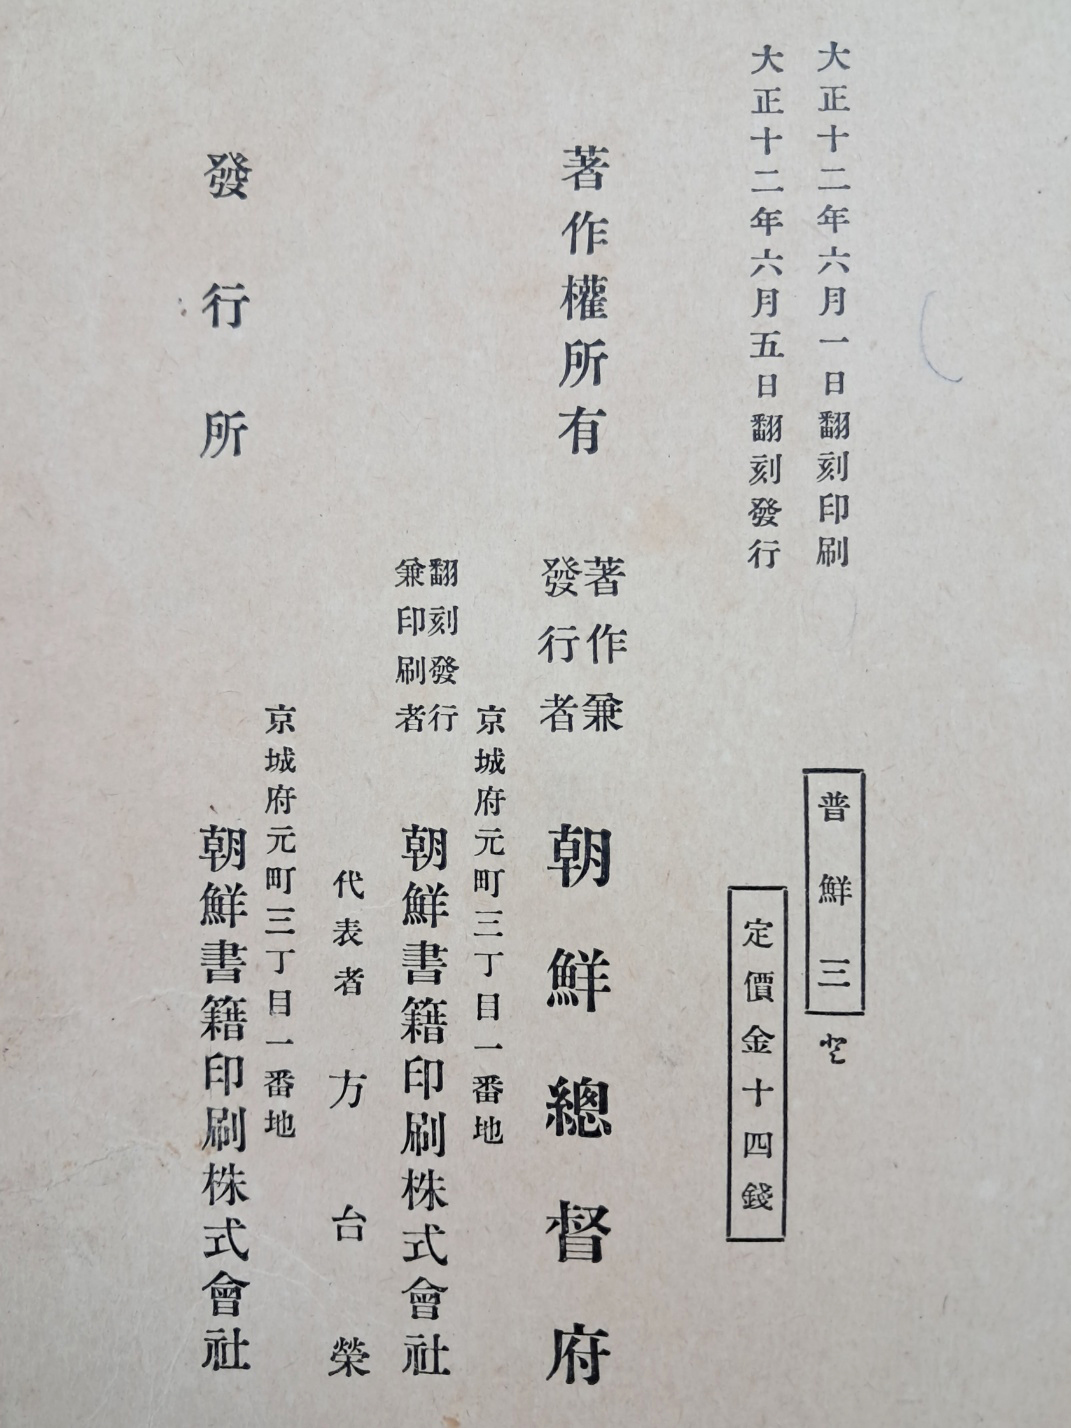 大正十二年六月一日翻刻印刷
大正十二年六月五日翻刻發行
普鮮三
定價金十四錢
著作權所有
著作兼
發行者
朝鮮總督府
京城府元町三丁目一番地
翻刻發行
兼印刷者
朝鮮書籍印刷株式會社
代表者 方台榮
京城府元町三丁目一番地
發行所
朝鮮書籍印刷株式會社